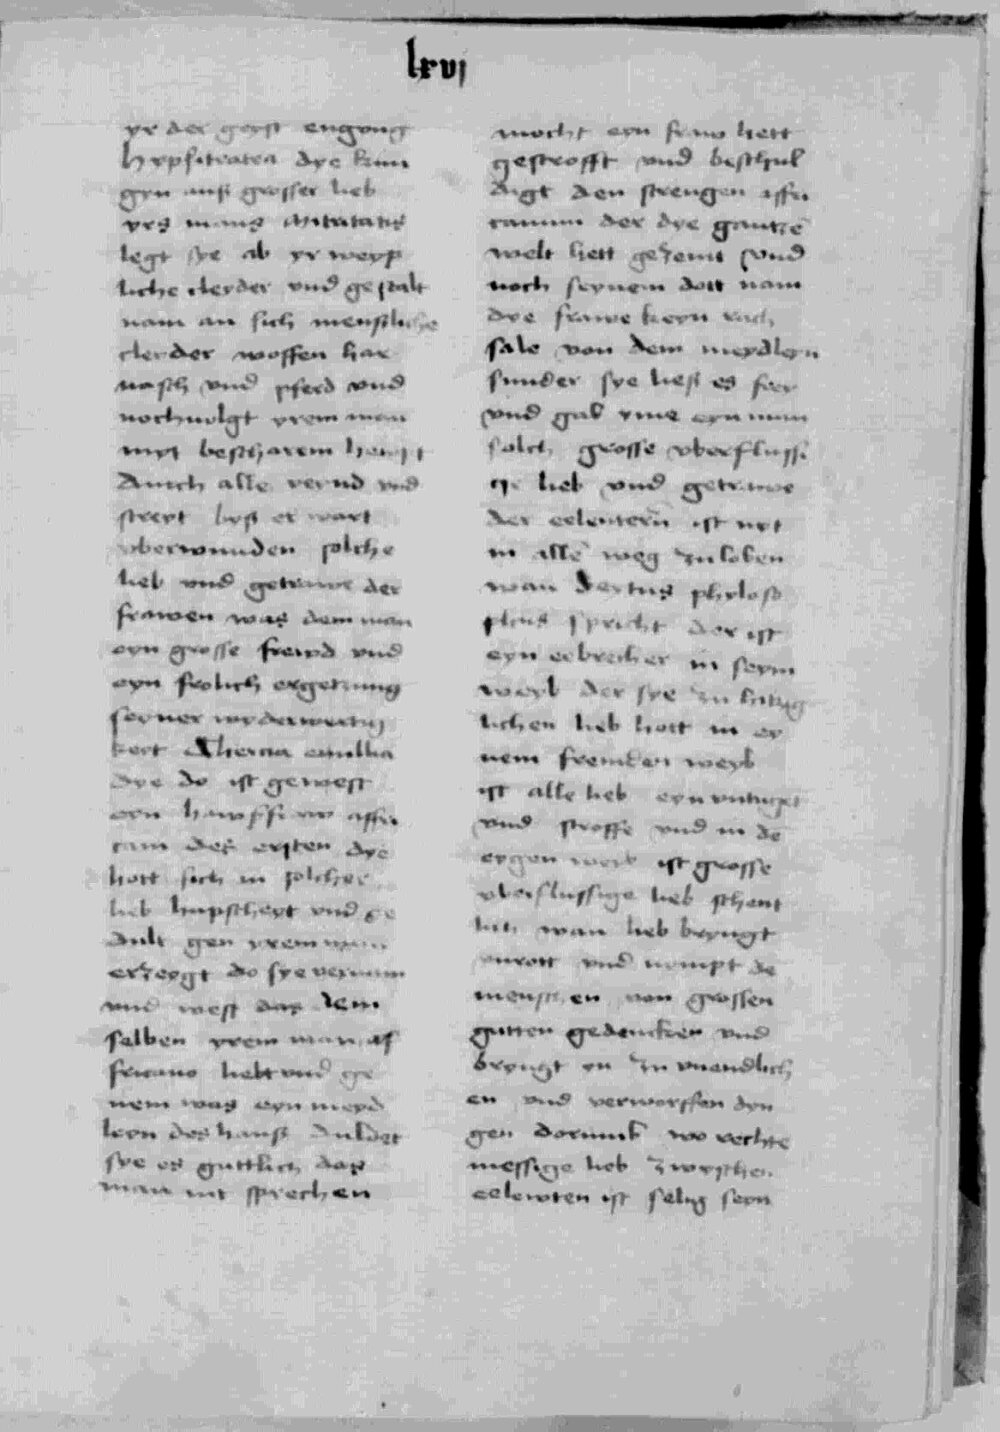 lxvj
yr der geyst engyng
hypsicratea dye kun
gyn auß grosser lieb
yrs mans mitritatis
legt sye ab yr weyp
liche cleyder vnd gestalt
nam an sich menstliche
cleyder woffen har
nasch vnd pferd vnd
nochuolgt yrem man
myt bescharem hewpt
durch alle veynd vnd
streyt byß er wart
vberwunden solche
lieb vnd getrawe der
frawen was dem man
eyn grosse frewd vnd
eyn frolich ergetzung
seyner wyderwertig
keyt Thercia emilia
dye do ist gewest
eyn hawßfraw affri
cani des ersten dye
hott sich in solcher
lieb hupscheyt vnd ge
dult gen yrem man
erzeygt do sye vernam
vnd west das dem
selben yrem man af
fricano liebt vnd ge
nem was eyn meyd
leyn des hauß duldet
sye es guttlich das
man nit sprechen
mocht eyn fraw hett
gestrofft vnd beschul
digt den strengen affri
canum der dye gantze
welt hett gezemt vnd
noch seynem dott nam
dye frawe keyn rach
sale von dem meydleyn
sunder sye ließ es frey
vnd gab yme eyn man
solch grosse vberflussi
ge lieb vnd getrawe
der eeleutern ist nyt
in alle weg zu loben
wan Sextus phyloso
phus spricht der ist
eyn eebrecher in seym
weyb der sye zu hitzig
lichen lieb hott in ey
nem fremden weyb
ist alle lieb eyn vntuget
vnd stroffe vnd in de
eygen weyb ist grosse
vberflussige lieb schent
lich wan lieb bryngt
vnrott vnd nympt de
menschen von grossen
gutten gedencken vnd
bryngt yn zu vnendlich
en vnd verworffen dyn
gen dorumb wo rechte
messige lieb zwyschen
eelewten ist selig seyn